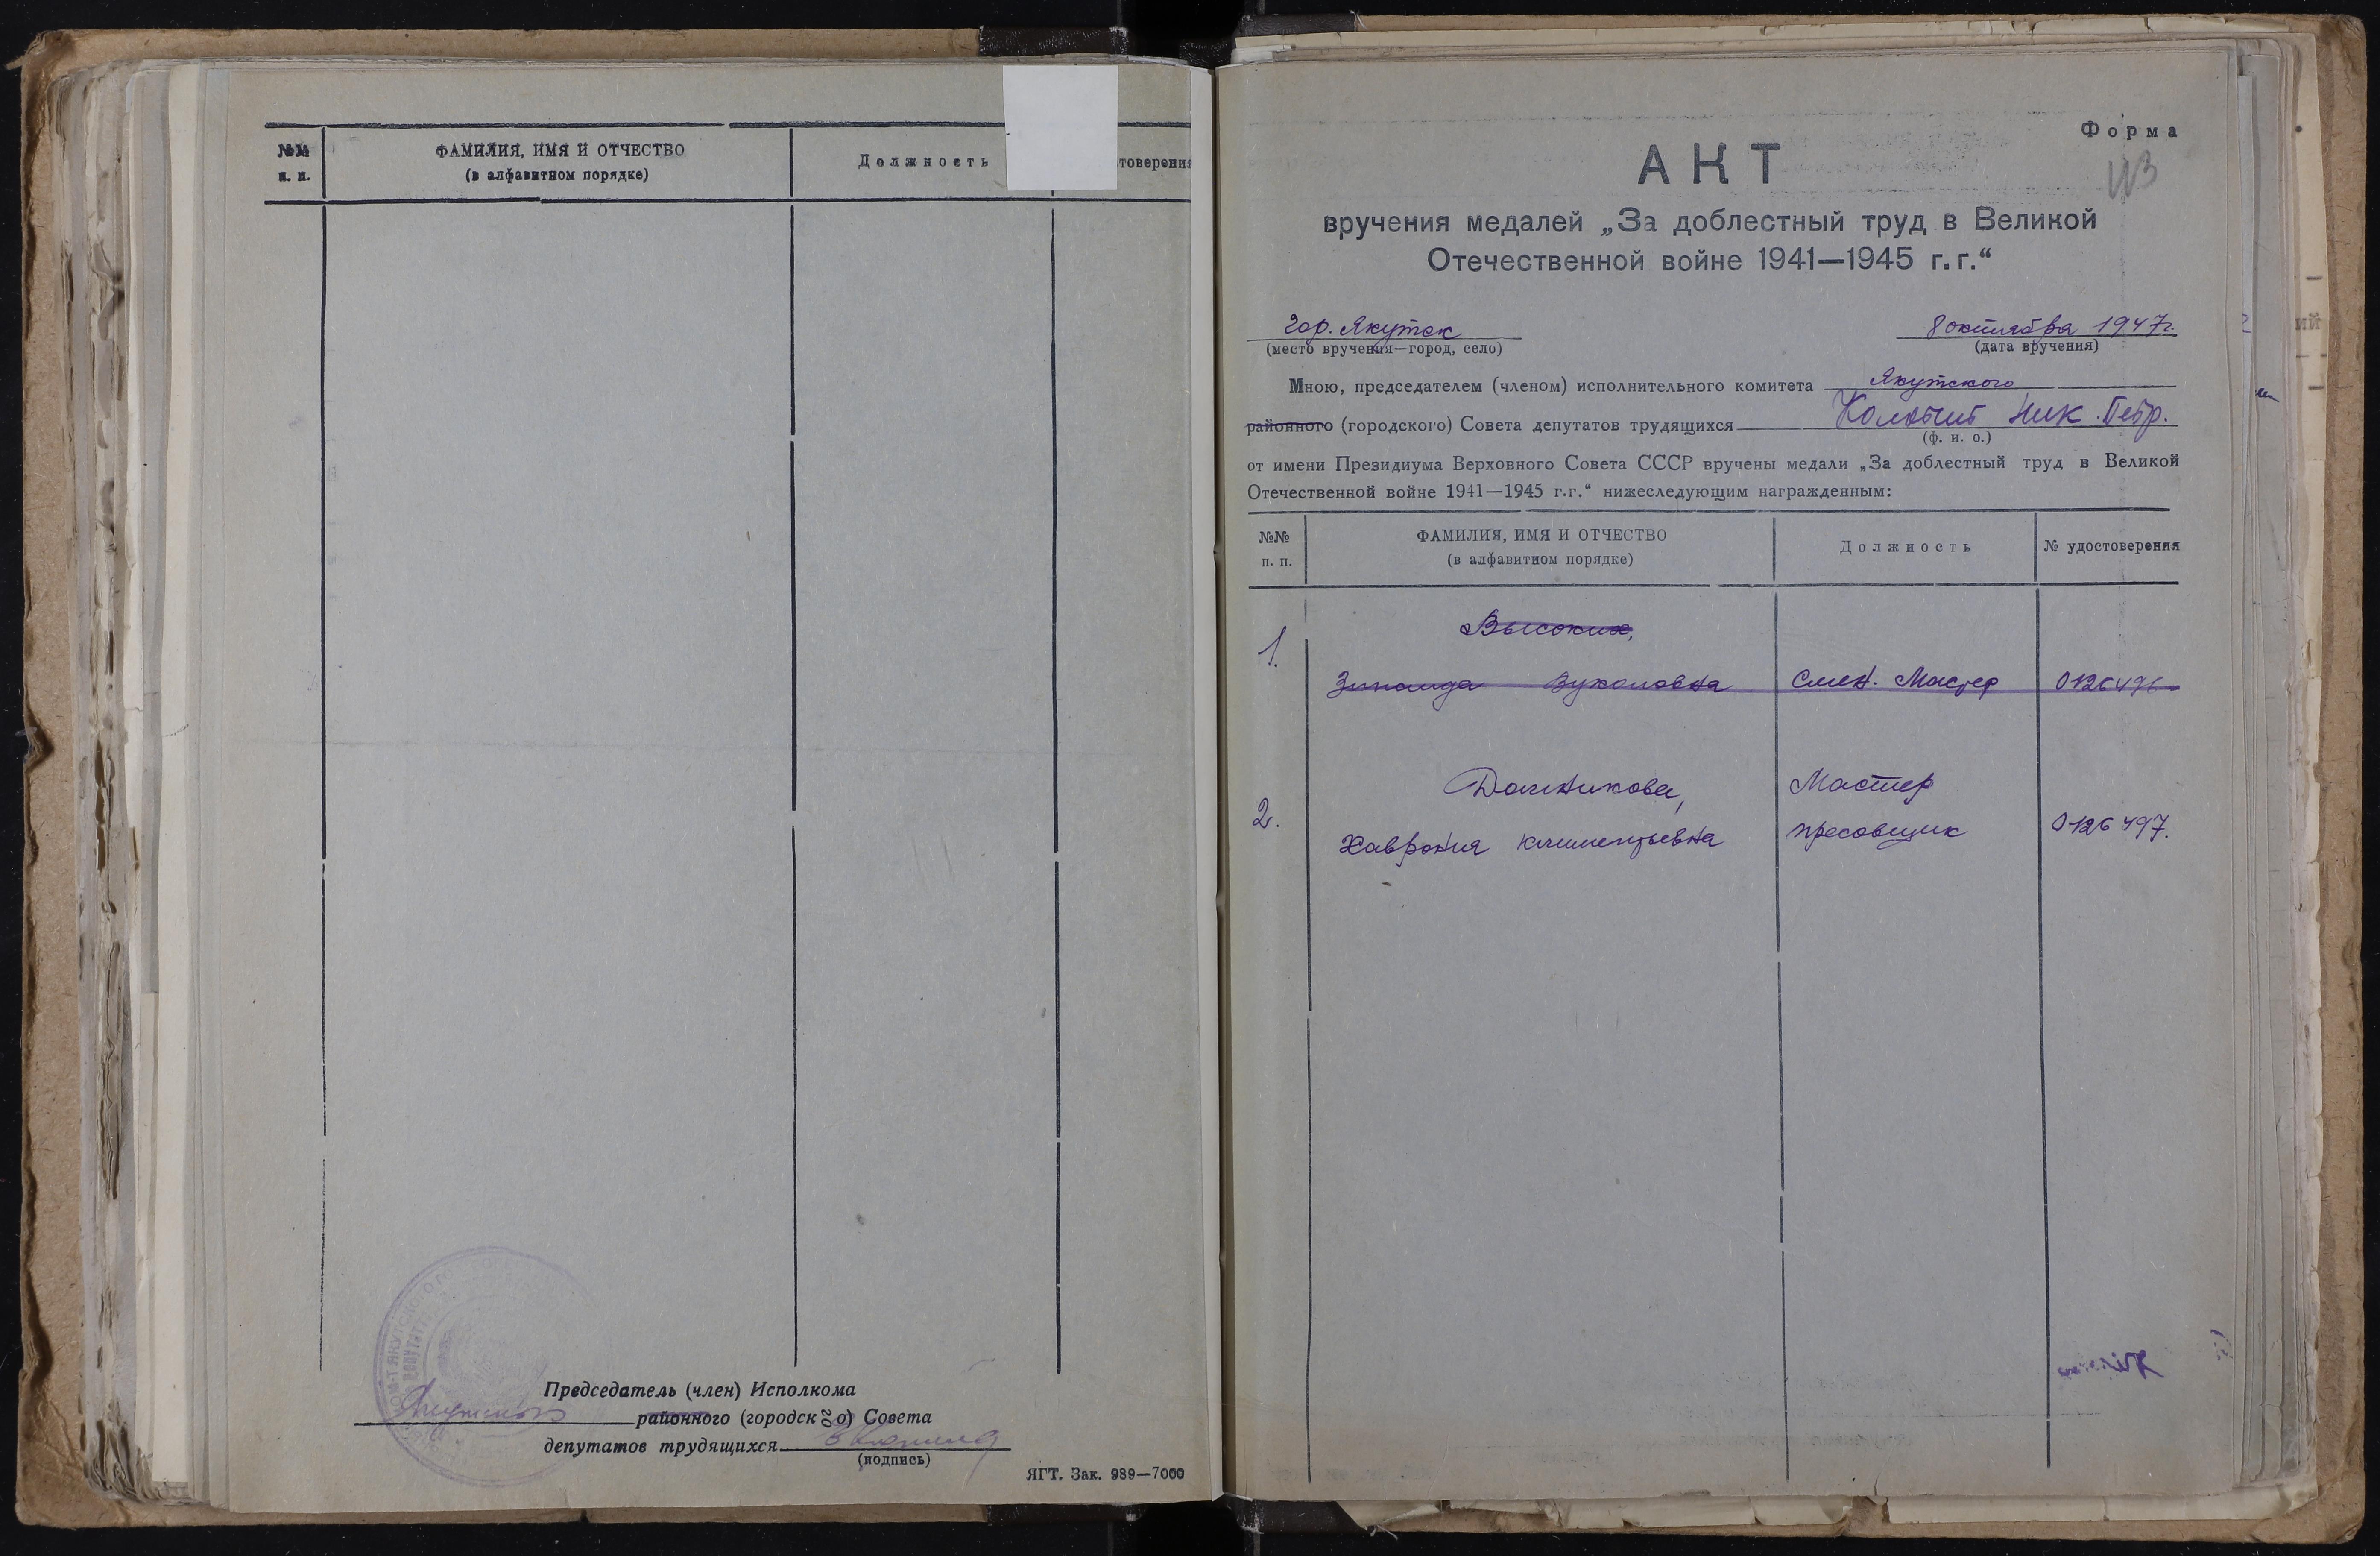 №№
п. п.
ФАМИЛИЯ, ИМЯ И ОТЧЕСТВО
(в алфавитном порядке)
Должность
товерения
Председатель (член) Исполкома
Якутского районного (городского) Совета
депутатов трудящихся
(подпись)
ЯГТ. Зак. 989—7000
Форма
АКТ
вручения медалей „За доблестный труд в Великой
Отечественной войне 1941—1945 г.г.“
гор. Якутск
8 октября 1947г.
(место вручения—город, село)
(дата вручения)
Мною, председателем (членом) исполнительного комитета Якутского
районного (городского) Совета депутатов трудящихся Ник. Петр.
(ф. и. о.)
от имени Президиума Верховного Совета СССР вручены медали „За доблестный труд в Великой
Отечественной войне 1941—1945 г.г.“ нижеследующим награжденным:
№№
п. п.
ФАМИЛИЯ, ИМЯ И ОТЧЕСТВО
(в алфавитном порядке)
Должность
№ удостоверения
1.
Высоких,
Зинаида Вуколовна
Смен. Мастер
0126496
2.
Долникова,
Хаврония Климентьевна
Мастер
пресовщик
0126497.